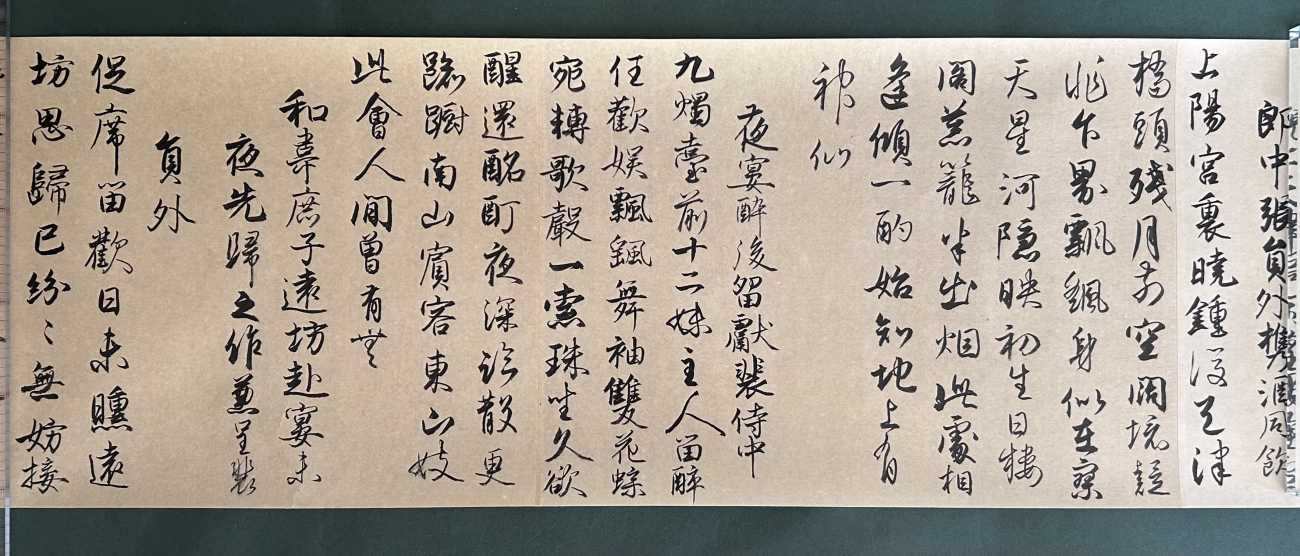 郎中張員外攜酒同飲
上陽宮裏曉鍾後天津
橋頭殘月前空闊境疑
非下界飄飖身似在寥
天星河隱映初生日樓
閣葱籠半出烟此處相
逢傾一酌始知地上有
神仙
夜宴醉後留獻裴侍中
九燭臺前十二姝主人留醉
任歡娛飄飖舞袖雙花蝶
宛轉歌聲一索珠坐久欲
醒還酩酊夜深臨散更
踟躕南山賓客東山妓
此會人間曾有無
和韋庶子遠坊赴宴未
夜先歸之作兼呈裴
員外
促席留歡日未曛遠
坊思歸已紛〻無妨按